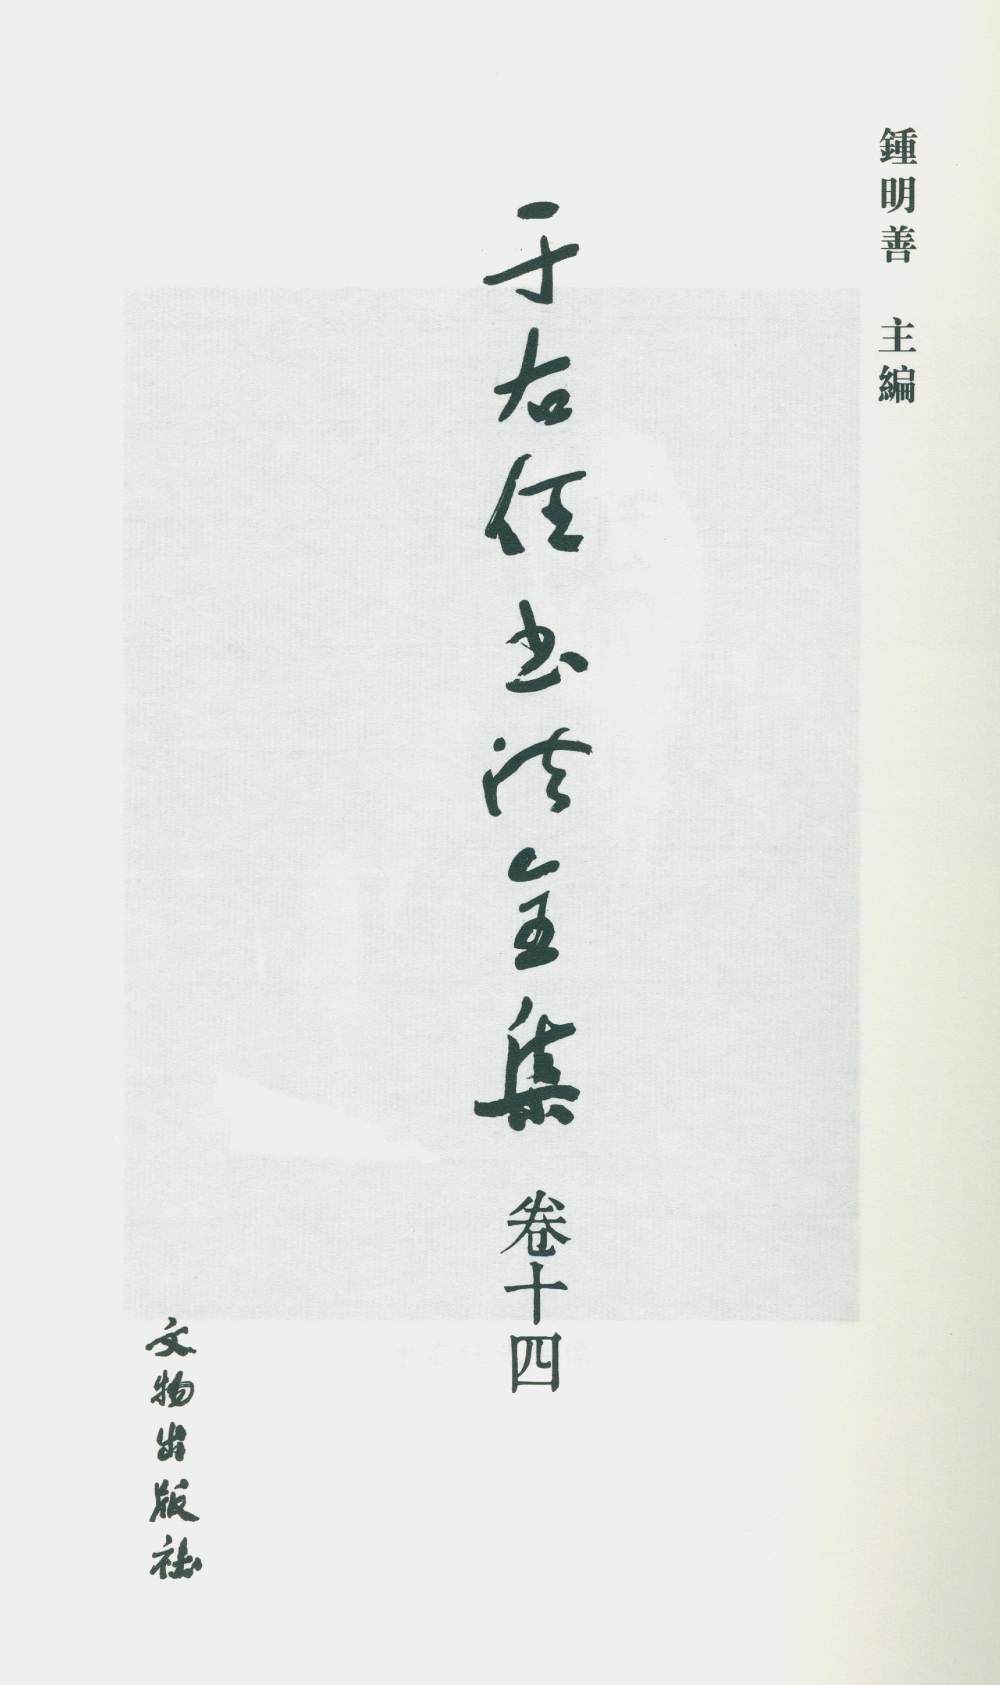 鍾明善　主編
于右任书法全集 卷十四
文物出版社